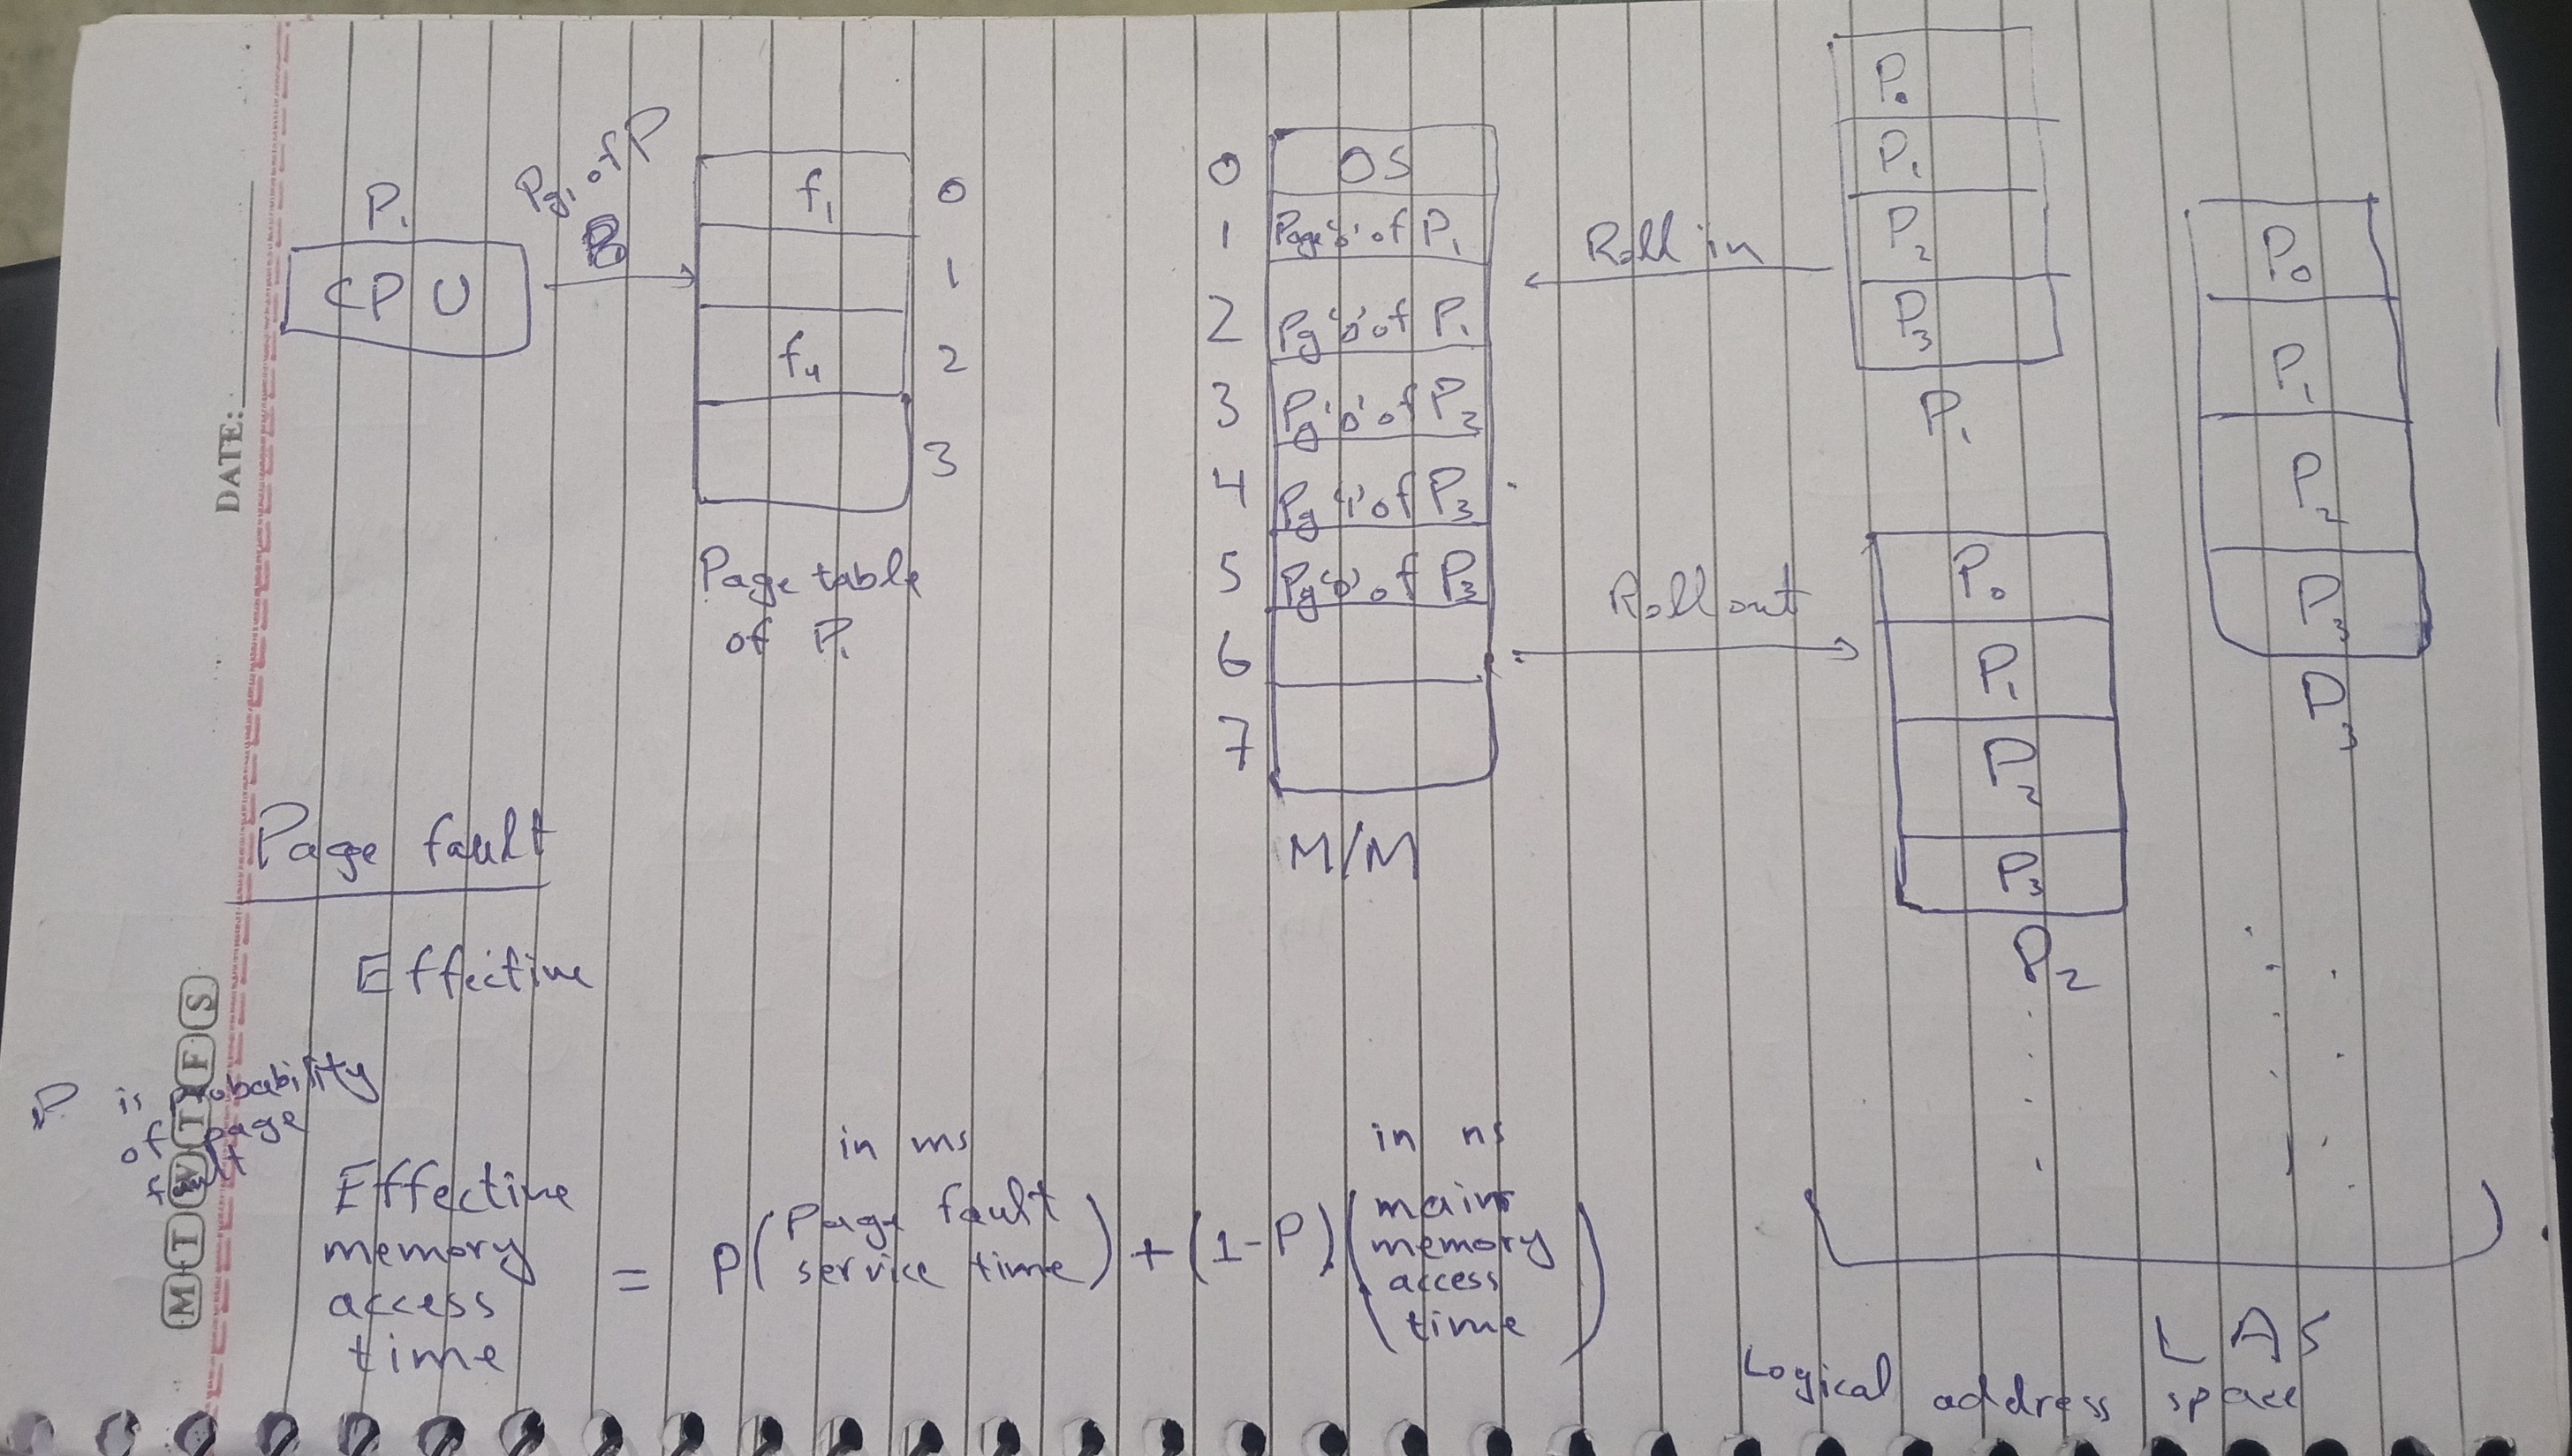 DATE:
P₁
CPU
Pg₁ of P
f₁ 0
1
f₄ 2
3
Page table
of P₁
0 OS
1 Page '0' of P₁
2 Pg '0' of P₁
3 Pg '0' of P₂
4 Pg '1' of P₃
5 Pg '0' of P₃
6
7
M/M
Roll in
Roll out
P₀
P₁
P₂
P₃
P₁
P₀
P₁
P₂
P₃
P₂
P₀
P₁
P₂
P₃
P₃
Page fault
Effective
P is probability
of page
fault
Effective
memory
access
time
=
in ms
P(Page fault
service time)
+ (1-P)
in ns
(main
memory
access
time)
LAS
Logical address space
M T W T F S